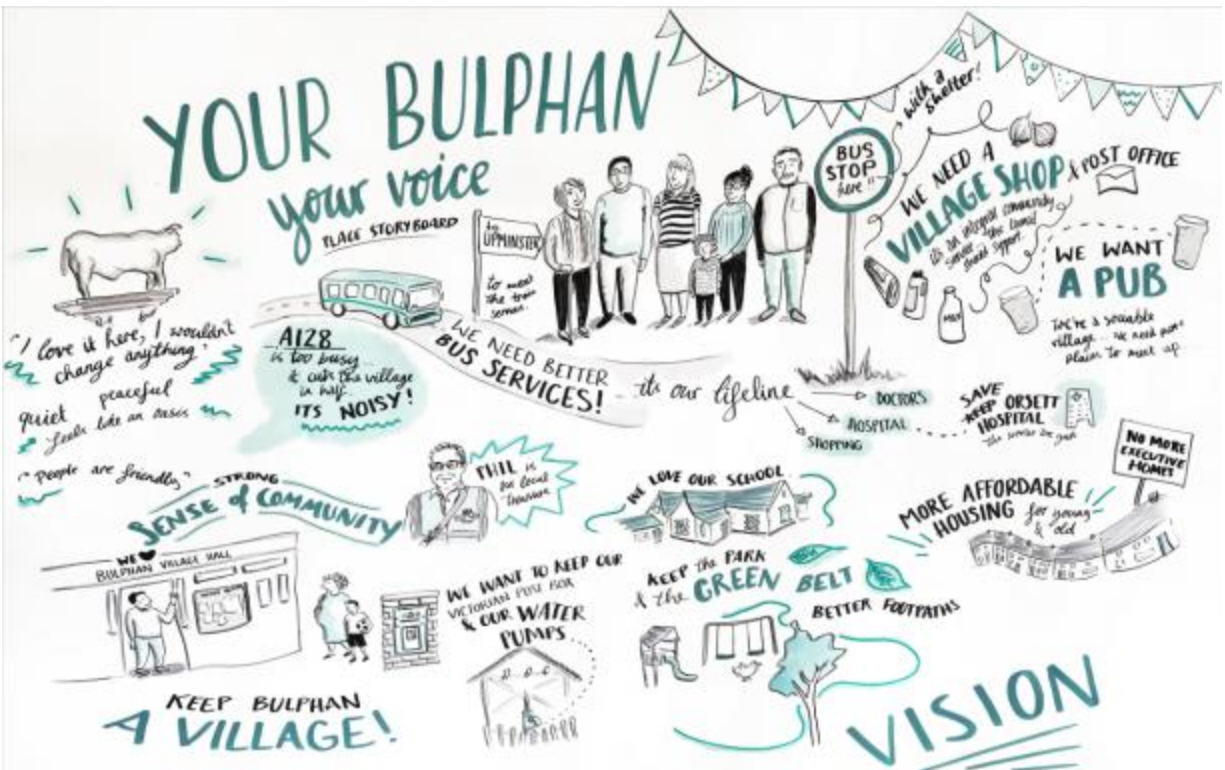 YOUR BULPHAN
your voice
PLACE STORYBOARD
to
UPMINSTER
to meet
the train
BUS
STOP
here"
with a
shelter!
WE NEED A
VILLAGE SHOP
& POST OFFICE
its an integral community
service the council
should support
MILK
WE WANT
A PUB
We're a sociable
village we need more
places to meet up
"I love it here, I wouldn't
change anything"
quiet peaceful
feels like an oasis
"People are friendly"
A128
is too busy
it cuts the village
in half
ITS NOISY!
WE NEED BETTER
BUS SERVICES!
its our lifeline
DOCTORS
HOSPITAL
SHOPPING
SAVE
KEEP ORSETT
HOSPITAL
NO MORE
EXECUTIVE
HOMES
MORE AFFORDABLE
HOUSING for young
& old
STRONG
SENSE of COMMUNITY
PHIL is
our local
treasure
WE LOVE OUR SCHOOL
WE
BULPHAN VILLAGE HALL
WE WANT TO KEEP OUR
VICTORIAN POST BOX
& OUR WATER
PUMPS
KEEP the PARK
& the GREEN BELT
BETTER FOOTPATHS
KEEP BULPHAN
A VILLAGE!
VISION